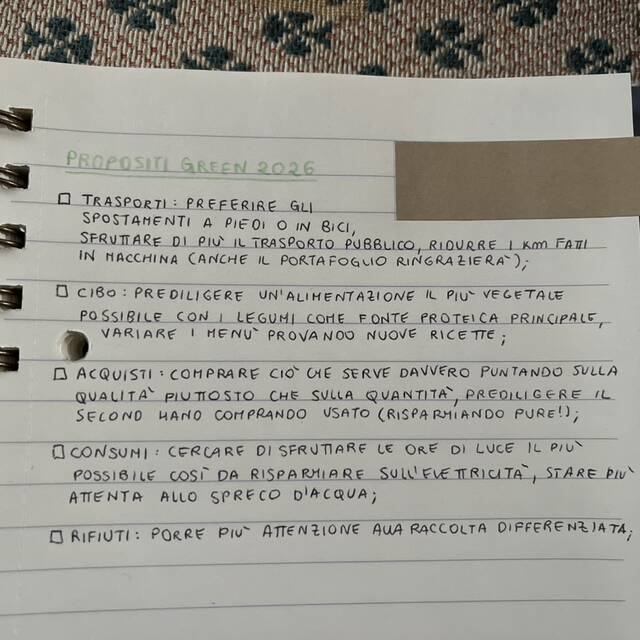 PROPOSITI GREEN 2026
TRASPORTI: PREFERIRE GLI
SPOSTAMENTI A PIEDI O IN BICI,
SFRUTTARE DI PIÙ IL TRASPORTO PUBBLICO, RIDURRE I KM FATTI
IN MACCHINA (ANCHE IL PORTAFOGLIO RINGRAZIERÀ);
CIBO: PREDILIGERE UN'ALIMENTAZIONE IL PIÙ VEGETALE
POSSIBILE CON I LEGUMI COME FONTE PROTEICA PRINCIPALE,
VARIARE I MENÙ PROVANDO NUOVE RICETTE;
ACQUISTI: COMPRARE CIÒ CHE SERVE DAVVERO PUNTANDO SULLA
QUALITÀ PIUTTOSTO CHE SULLA QUANTITÀ, PREDILIGERE IL
SECOND HAND COMPRANDO USATO (RISPARMIANDO PURE!);
CONSUMI: CERCARE DI SFRUTTARE LE ORE DI LUCE IL PIÙ
POSSIBILE COSÌ DA RISPARMIARE SULL'ELETTRICITÀ, STARE PIÙ
ATTENTA ALLO SPRECO D'ACQUA;
RIFIUTI: PORRE PIÙ ATTENZIONE ALLA RACCOLTA DIFFERENZIATA;